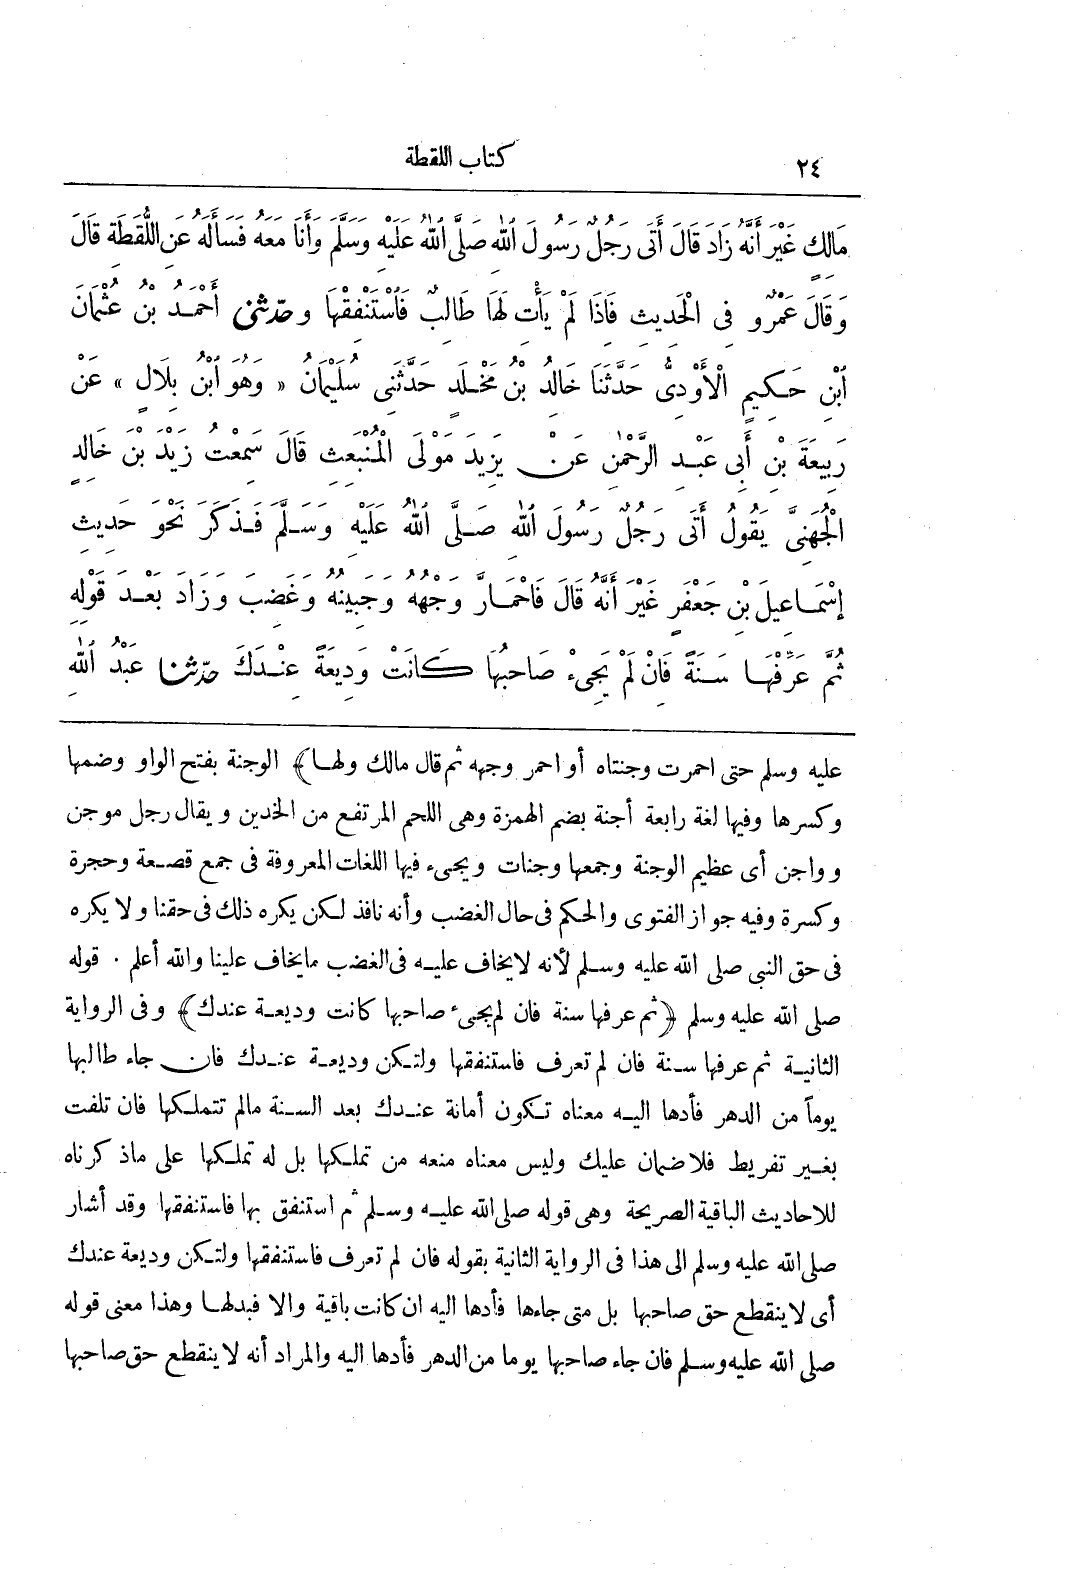 ٢٤ كتاب اللقطة
مَالِكٍ غَيْرَ أَنَّهُ زَادَ قَالَ أَتَى رَجُلٌ رَسُولَ اللهِ صَلَّى اللهُ عَلَيْهِ وَسَلَّمَ وَأَنَا مَعَهُ فَسَأَلَهُ عَنِ اللُّقَطَةِ قَالَ
وَقَالَ عَمْرٌو فِى الْحَدِيثِ فَاذَا لَمْ يَأْتِ لَهَا طَالِبٌ فَاسْتَنْفِقْهَا و حدّثنى أَحْمَدُ بْنُ عُثْمَانَ
ابْنِ حَكِيمٍ الْأَوْدِىُّ حَدَّثَنَا خَالِدُ بْنُ مَخْلَدٍ حَدَّثَنِى سُلَيْمَانُ « وَهُوَ ابْنُ بِلَالٍ » عَنْ
رَبِيعَةَ بْنِ أَبِى عَبْدِ الرَّحْمٰنِ عَنْ يَزِيدَ مَوْلَى الْمُنْبَعِثِ قَالَ سَمِعْتُ زَيْدَ بْنَ خَالِدٍ
الْجُهَنِىَّ يَقُولُ أَتَى رَجُلٌ رَسُولَ اللهِ صَلَّى اللهُ عَلَيْهِ وَسَلَّمَ فَذَكَرَ نَحْوَ حَدِيثِ
إِسْمَاعِيلَ بْنِ جَعْفَرٍ غَيْرَ أَنَّهُ قَالَ فَاحْمَارَّ وَجْهُهُ وَجَبِينُهُ وَغَضِبَ وَزَادَ بَعْدَ قَوْلِهِ
ثُمَّ عَرِّفْهَا سَنَةً فَإِنْ لَمْ يَجِىءْ صَاحِبُهَا كَانَتْ وَدِيعَةً عِنْدَكَ حدّثنا عَبْدُ اللهِ
عليه وسلم حتى احمرت وجنتاه أو احمر وجهه ثم قال مالك ولها﴾ الوجنة بفتح الواو وضمها
وكسرها وفيها لغة رابعة أجنة بضم الهمزة وهى اللحم المرتفع من الخدين ويقال رجل موجن
وواجن أى عظيم الوجنة وجمعها وجنات ويجىء فيها اللغات المعروفة فى جمع قصعة وحجرة
وكسرة وفيه جواز الفتوى والحكم فى حال الغضب وأنه نافذ لكن يكره ذلك فى حقنا ولا يكره
فى حق النبى صلى الله عليه وسلم لأنه لا يخاف عليه فى الغضب مايخاف علينا والله أعلم . قوله
صلى الله عليه وسلم ﴿ثم عرفها سنة فان لم يجىء صاحبها كانت وديعة عندك﴾ وفى الرواية
الثانية ثم عرفها سنة فان لم تعرف فاستنفقها ولتكن وديعة عندك فان جاء طالبها
يوماً من الدهر فأدها اليه معناه تكون أمانة عندك بعد السنة مالم تتملكها فان تلفت
بغير تفريط فلا ضمان عليك وليس معناه منعه من تملكها بل له تملكها على ماذكرناه
للاحاديث الباقية الصريحة وهى قوله صلى الله عليه وسلم ثم استنفق بها فاستنفقها وقد أشار
صلى الله عليه وسلم الى هذا فى الرواية الثانية بقوله فان لم تعرف فاستنفقها ولتكن وديعة عندك
أى لا ينقطع حق صاحبها بل متى جاءها فأدها اليه ان كانت باقية والا فبدلها وهذا معنى قوله
صلى الله عليه وسلم فان جاء صاحبها يوما من الدهر فأدها اليه والمراد أنه لا ينقطع حق صاحبها